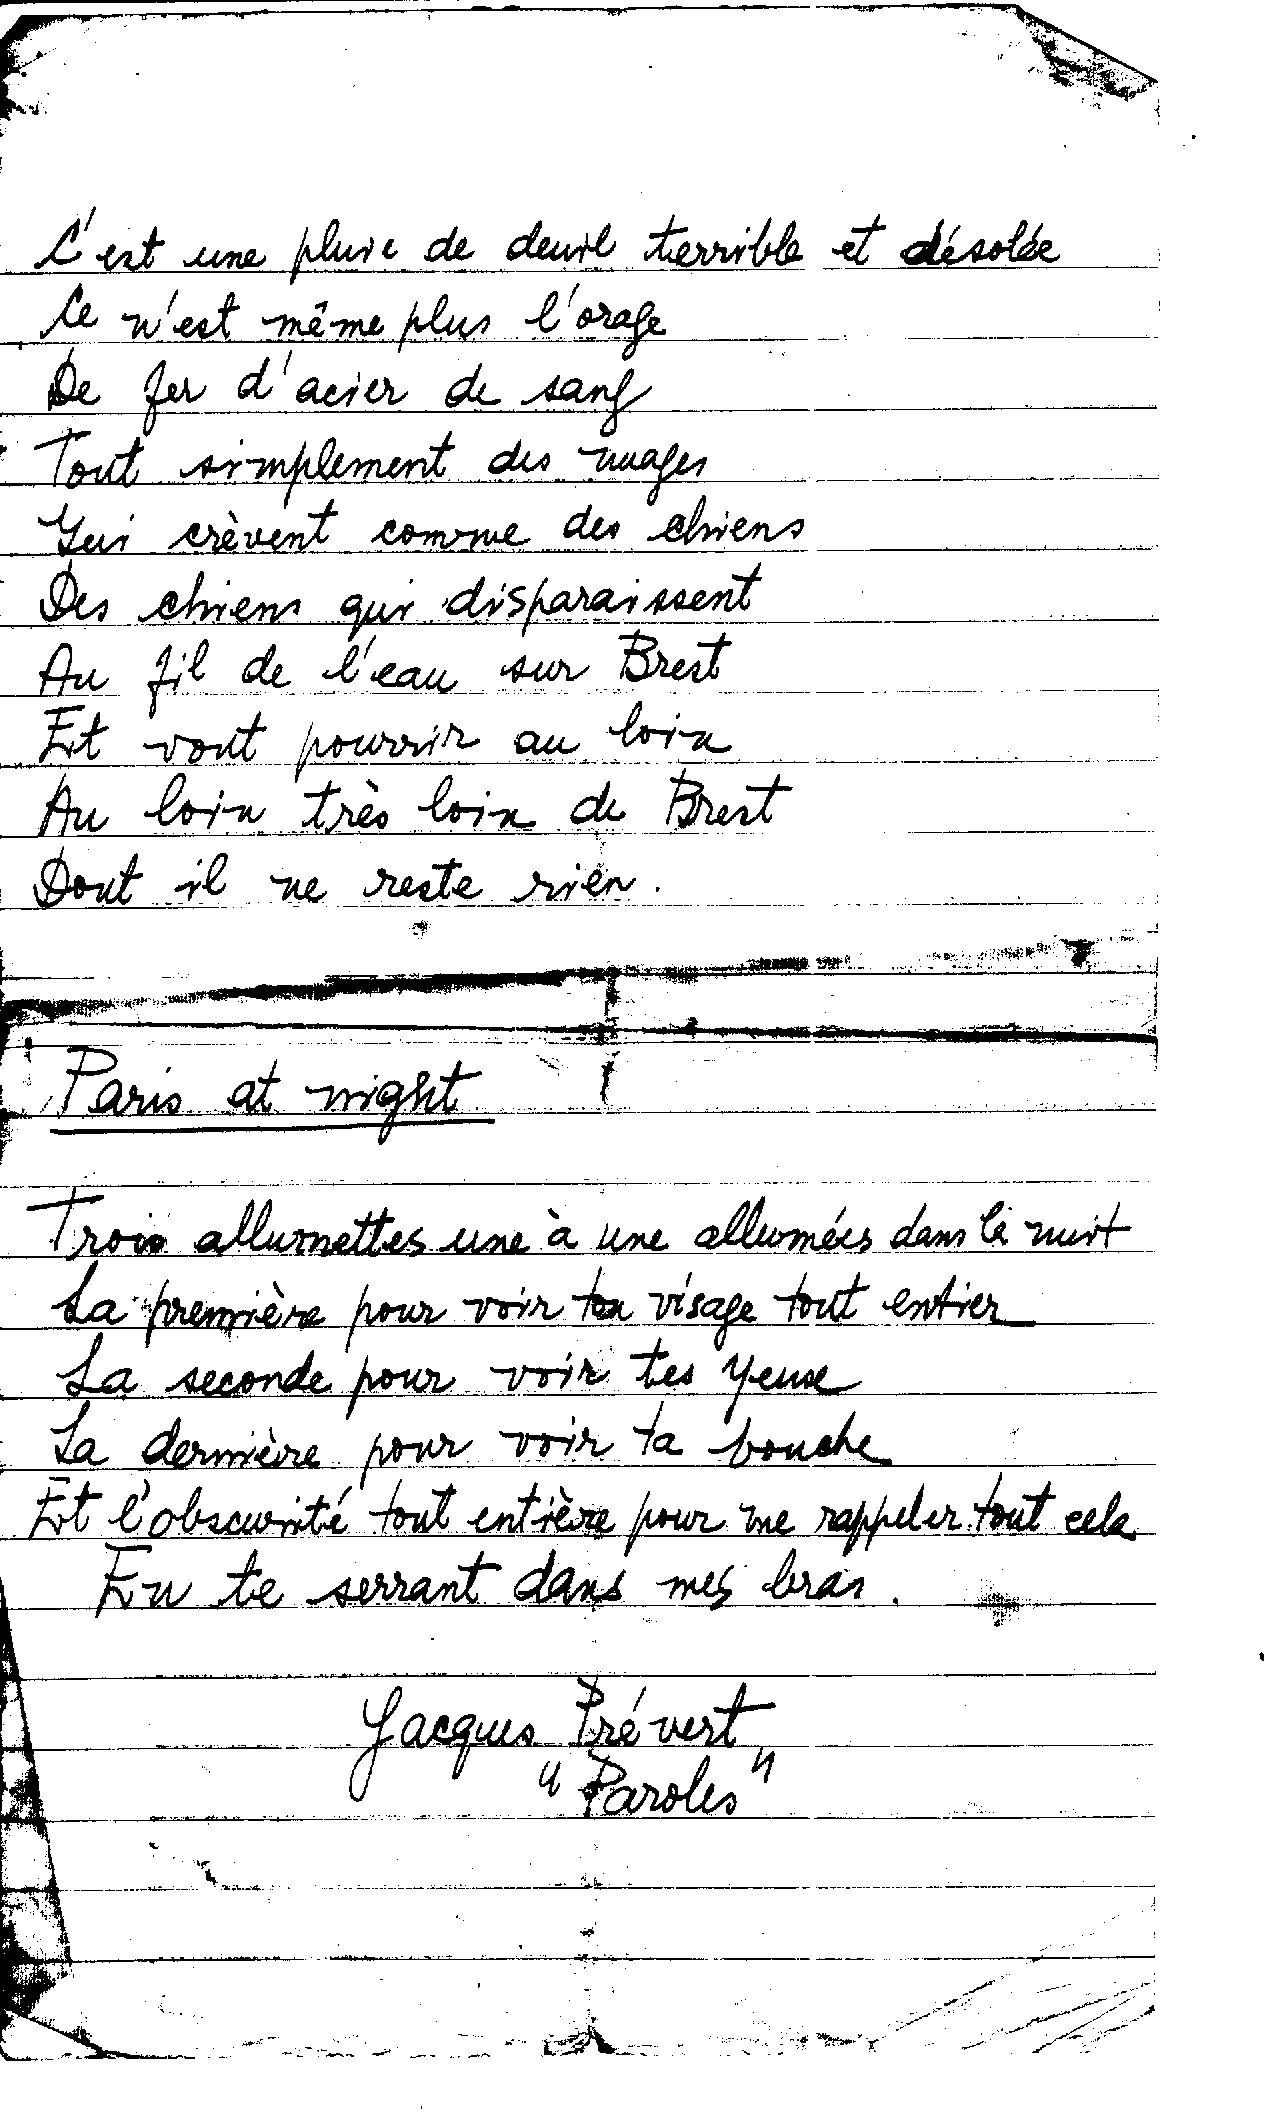 C'est une pluie de deuil terrible et désolée
Ce n'est même plus l'orage
De fer d'acier de sang
Tout simplement des nuages
Qui crèvent comme des chiens
Des chiens qui disparaissent
Au fil de l'eau sur Brest
Et vont pourrir au loin
Au loin très loin de Brest
Dont il ne reste rien.
Paris at night
Trois allumettes une à une allumées dans la nuit
La première pour voir ton visage tout entier
La seconde pour voir tes yeux
La dernière pour voir ta bouche
Et l'obscurité tout entière pour me rappeler tout cela
En te serrant dans mes bras.
Jacques Prévert
"Paroles"